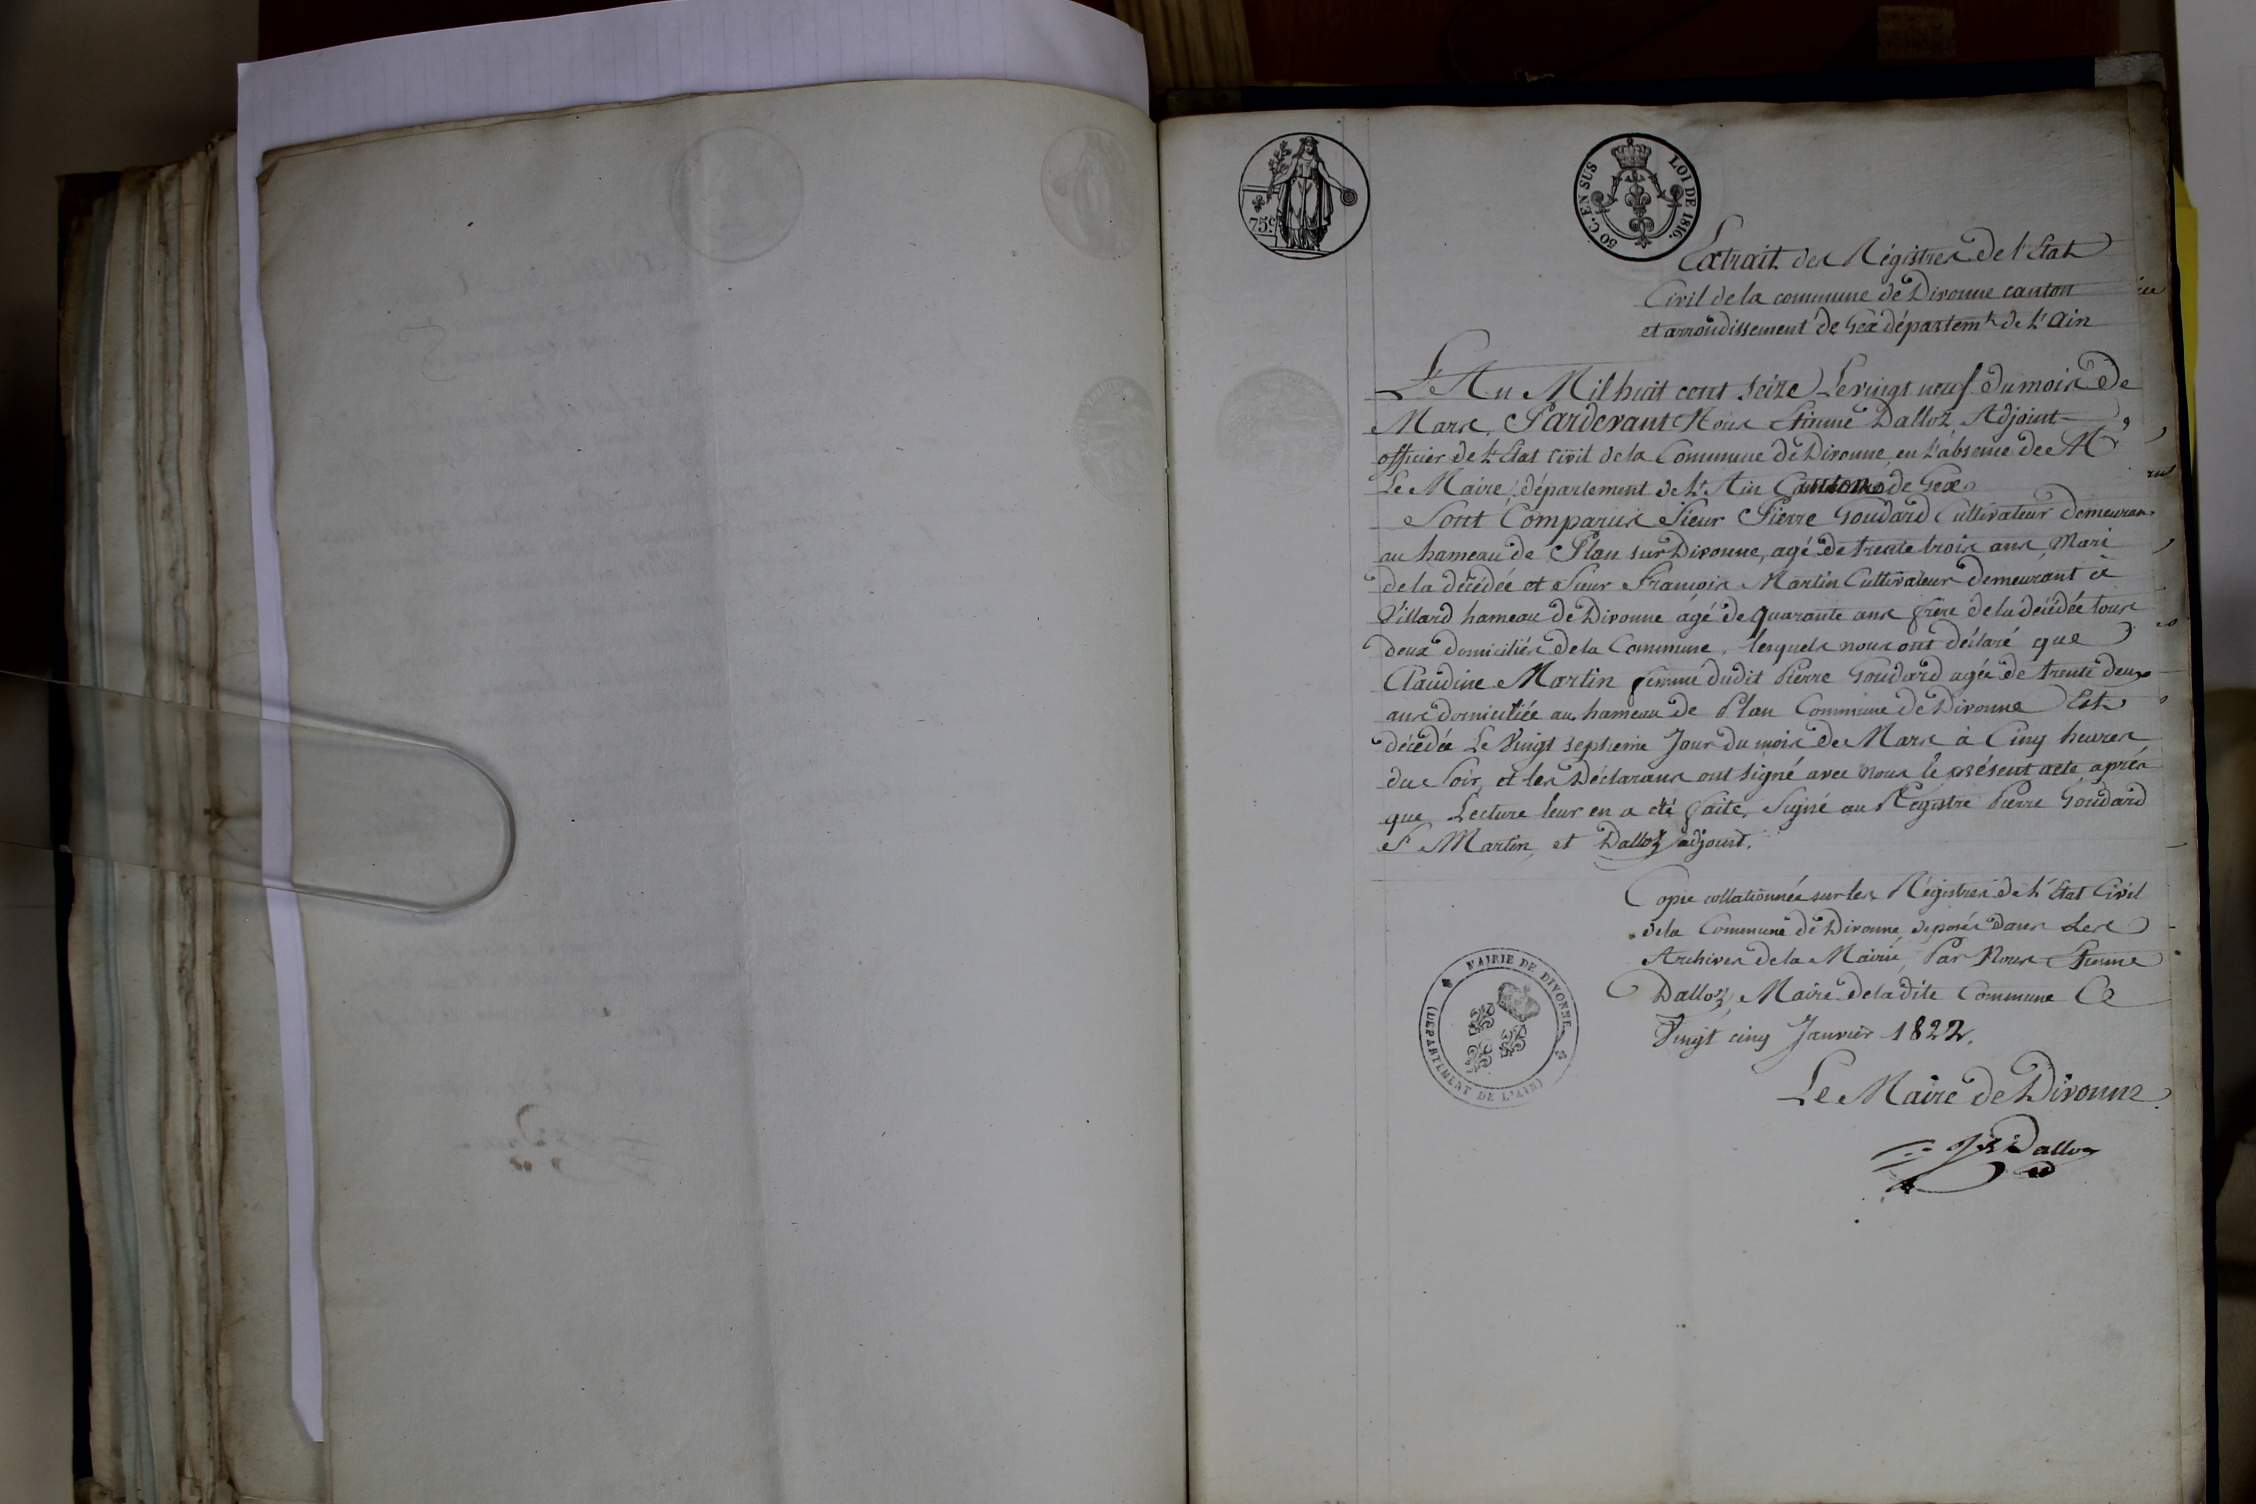 75c.
50 C. EN SUS LOI DE 1816.
Extrait des Régistres de l'Etat
Civil de la commune de Divonne canton
et arrondissement de Gex départemt. de L'Ain
L'An Mil huit cent seize Le vingt neuf du mois de
Mars. Pardevant Nous Etienne Dalloz, Adjoint
officier de L'Etat Civil de la Commune de Divonne, en l'absence de Mr.
Le Maire, département de L'Ain Canton de Gex
Sont Comparus Sieur Pierre Goudard Cultivateur demeurant
au hameau de Plan sur Divonne, agé de trente trois ans, Mari
de la décédée et Sieur François Martin Cultivateur demeurant à
Villard hameau de Divonne agé de quarante ans frère de la décédée tous
deux domiciliés de la Commune, lesquels nous ont déclaré que
Claudine Martin femme dudit Pierre Goudard agée de trente deux
ans domiciliée au hameau de Plan Commune de Divonne Est
décédée Le Vingt septieme Jour du mois de Mars à Cinq heures
du Soir, et les Déclarans ont signé avec nous le présent acte après
que Lecture leur en a été faite, Signé au Régistre Pierre Goudard
F Martin, et Dalloz adjoint.
Copie collationnée sur les Régistres de L'Etat Civil
de la Commune de Divonne, deposés dans Les
Archives de la Mairie, Par Nous Etienne
Dalloz, Maire de la dite Commune Ce
Vingt cinq Janvier 1822.
MAIRIE DE DIVONNE
(DEPARTEMENT DE L'AIN)
Le Maire de Divonne
Dalloz